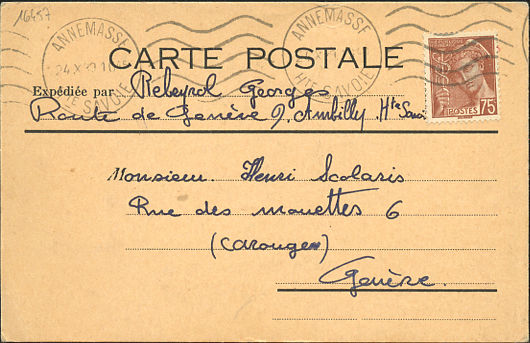 16457
ANNEMASSE
HTE SAVOIE
ANNEMASSE
HTE SAVOIE
CARTE POSTALE
POSTES 75
Expédiée par Rebeyrol Georges
Route de Genève 9, Ambilly Hte Savoie
Monsieur Henri Scolaris
Rue des mouettes 6
(Carouge)
Genève.